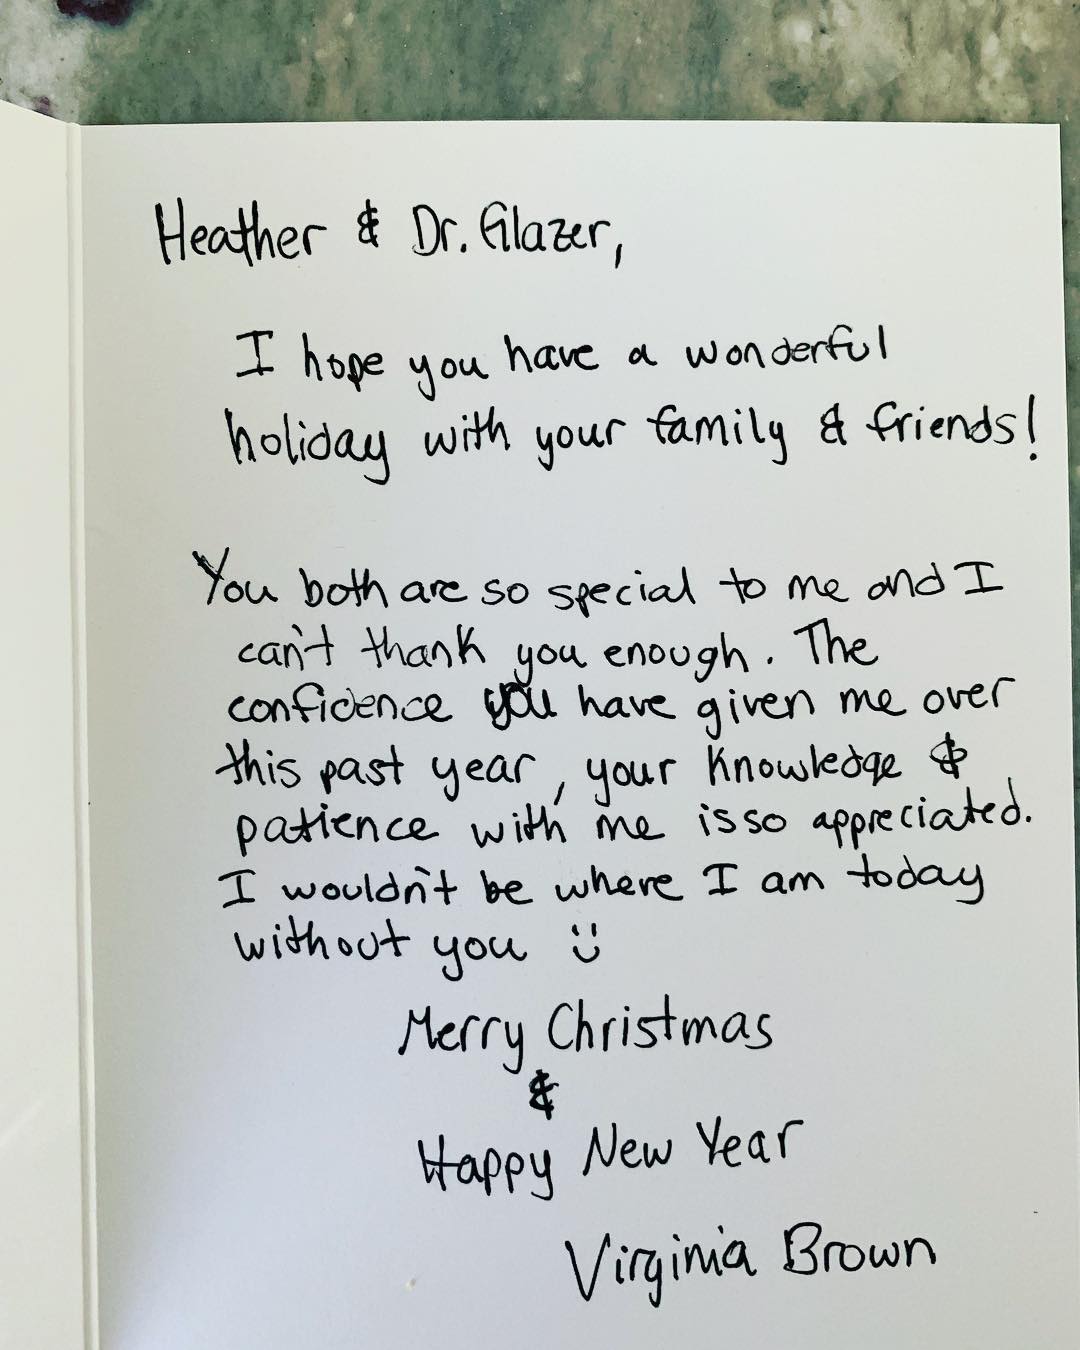 Heather & Dr. Glazer,
I hope you have a wonderful
holiday with your family & friends!
You both are so special to me and I
can't thank you enough. The
confidence you have given me over
this past year, your knowledge &
patience with me is so appreciated.
I wouldn't be where I am today
without you :)
Merry Christmas
&
Happy New Year
Virginia Brown